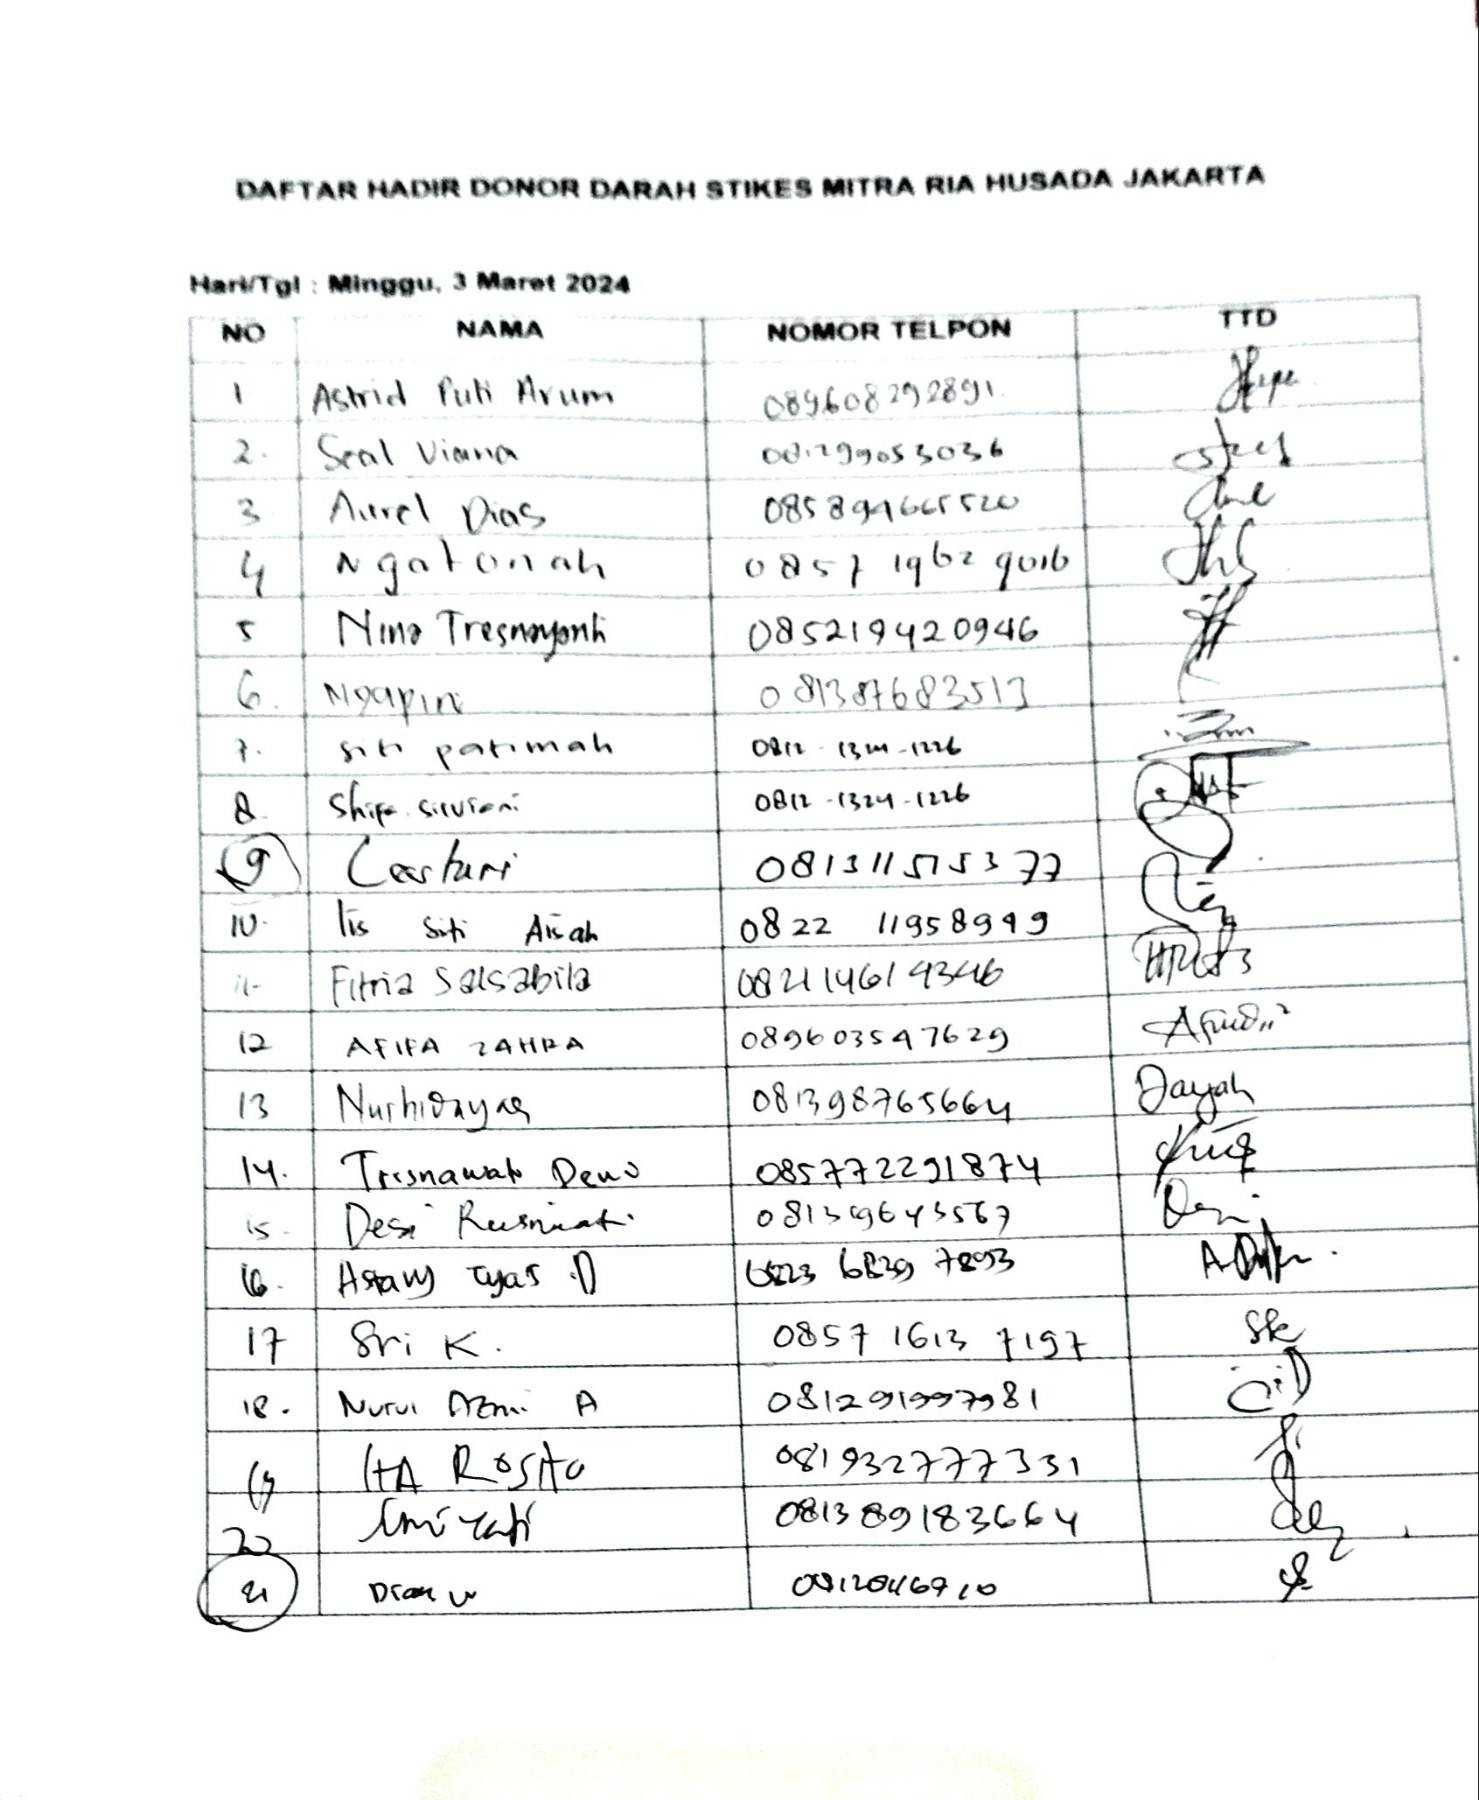 DAFTAR HADIR DONOR DARAH STIKES MITRA RIA HUSADA JAKARTA
Hari/Tgl : Minggu, 3 Maret 2024
NO NAMA NOMOR TELPON TTD
1 Astrid Puti Arum 089608292891
2. Seal Viana 081299053036
3 Aurel Dias
4 Ngatonah 0857 1962 9016
5 Nina Tresnayanti 085219420946
6. Ngapini 081387683513
7. siti patimah 0812 - 1324 - 1226
8. Shifa. silviani 0812 - 1324 - 1226
9 Castuni 081311515377
10. Iis Siti Aisah 0822 11958949
11- Fitria Salsabila 082114614346
12 AFIFA ZAHRA 089603547629
13 Nurhidayah 081398765664 Dayah
14. Trisnawati Dewi 085772291874
15. Desi Rusmiati 081369643567 Desi
16. Tyas D
17 Sri K. 0857 1613 7197 Sk
18. Nurul Azmi A 081291997981
19 ITA ROSITA 081932777331
20 081389183664
21 Dian W